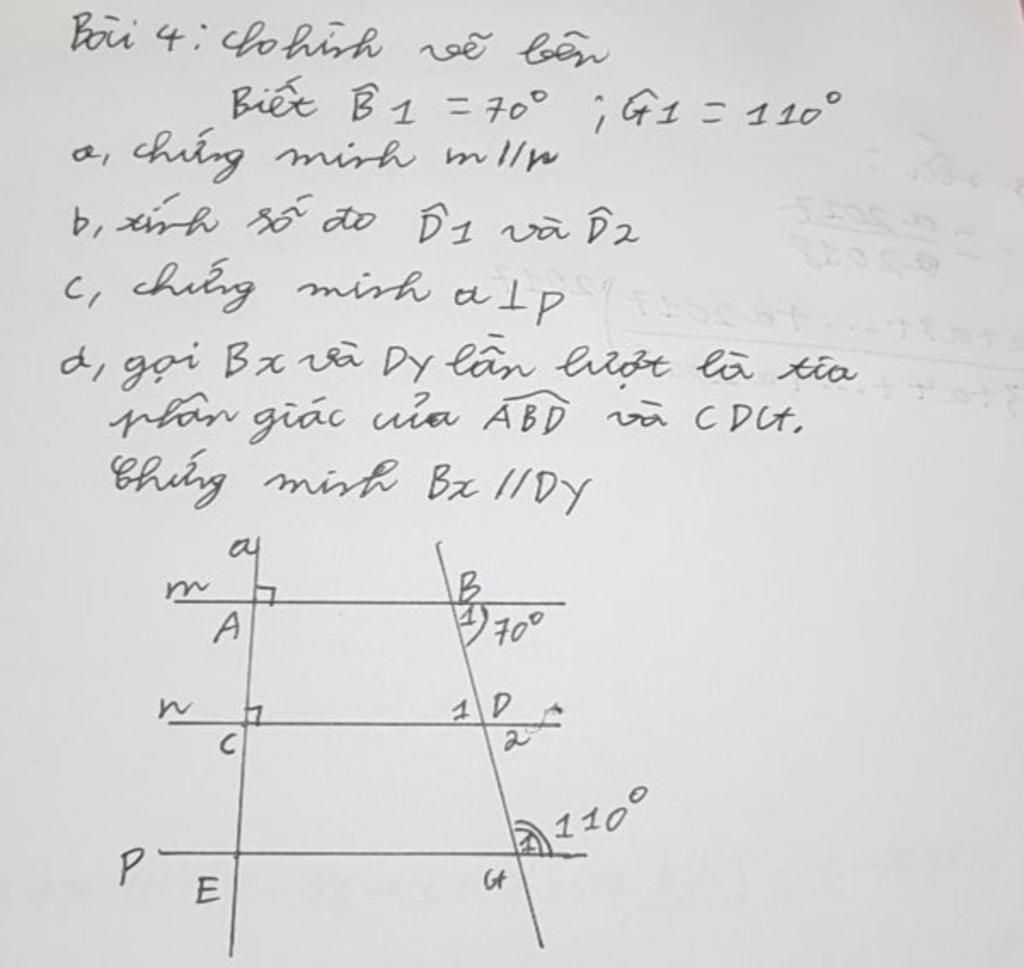 Bài 4: cho hình vẽ bên
Biết B̂1 = 70° ; Ĝ1 = 110°
a, chứng minh m//n
b, tính số đo D̂1 và D̂2
c, chứng minh a⊥p
d, gọi Bx và Dy lần lượt là tia
phân giác của ABD và CDG.
Chứng minh Bx//Dy
a
m
B
A
1
70°
n
1
D
C
2
110°
1
P
E
G